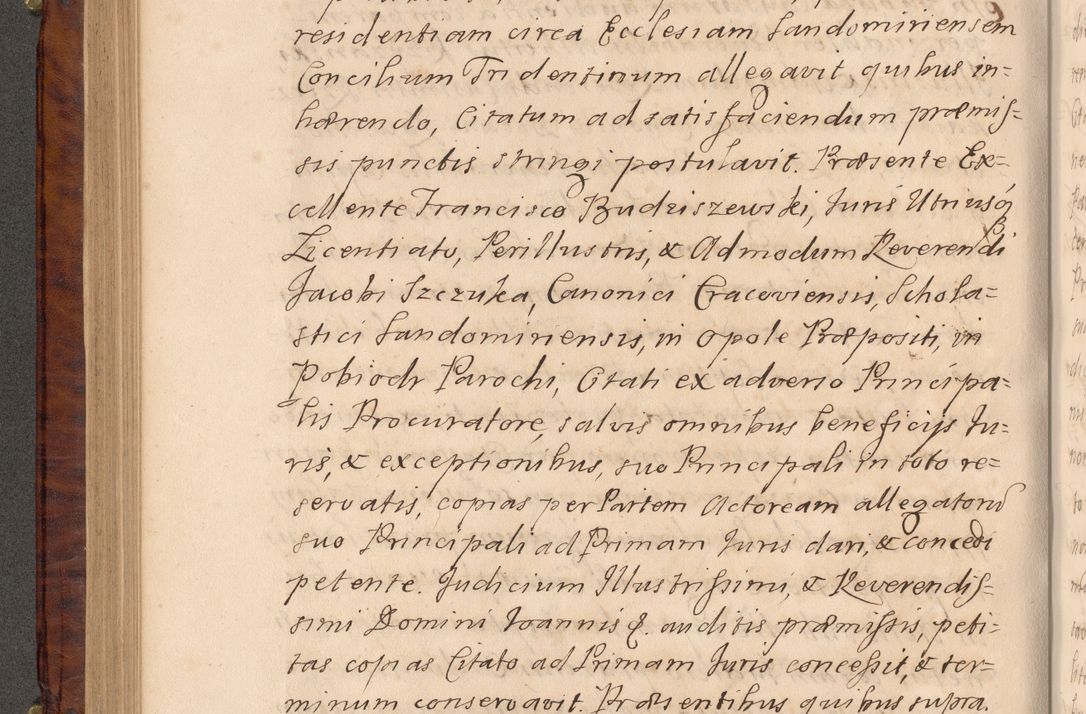 residentiam circa Ecclesiam Sandomiriensem
Concilium Tridentinum allegavit quibus in=
hærendo, Citatum ad satisfaciendum præmis=
sis punctis stringi postulavit. Præsente Ex=
cellente Francisco Budziszewski, Juris Utriusq
Licentiato, Perillustris, & Admodum Reverendi
Jacobi Szczuka, Canonici Cracoviensis, Schola=
stici Sandomiriensis, in Opole Præpositi, in
Pobiodr Parochi, Citati ex adverso Principa=
lis Procuratore, salvis omnibus beneficijs Ju=
ris, & exceptionibus, suo Principali in toto re=
servatis, copias per Partem Actoream allegatoru
suo Principali ad Primam Juris dari, & concedi
petente. Judicium Illustrissimi, & Reverendis=
simi Domini Joannis &. auditis præmissis, peti=
tas copias Citato ad Primam Juris concessit, & ter=
minum conservavit. Præsentibus quibus supra.